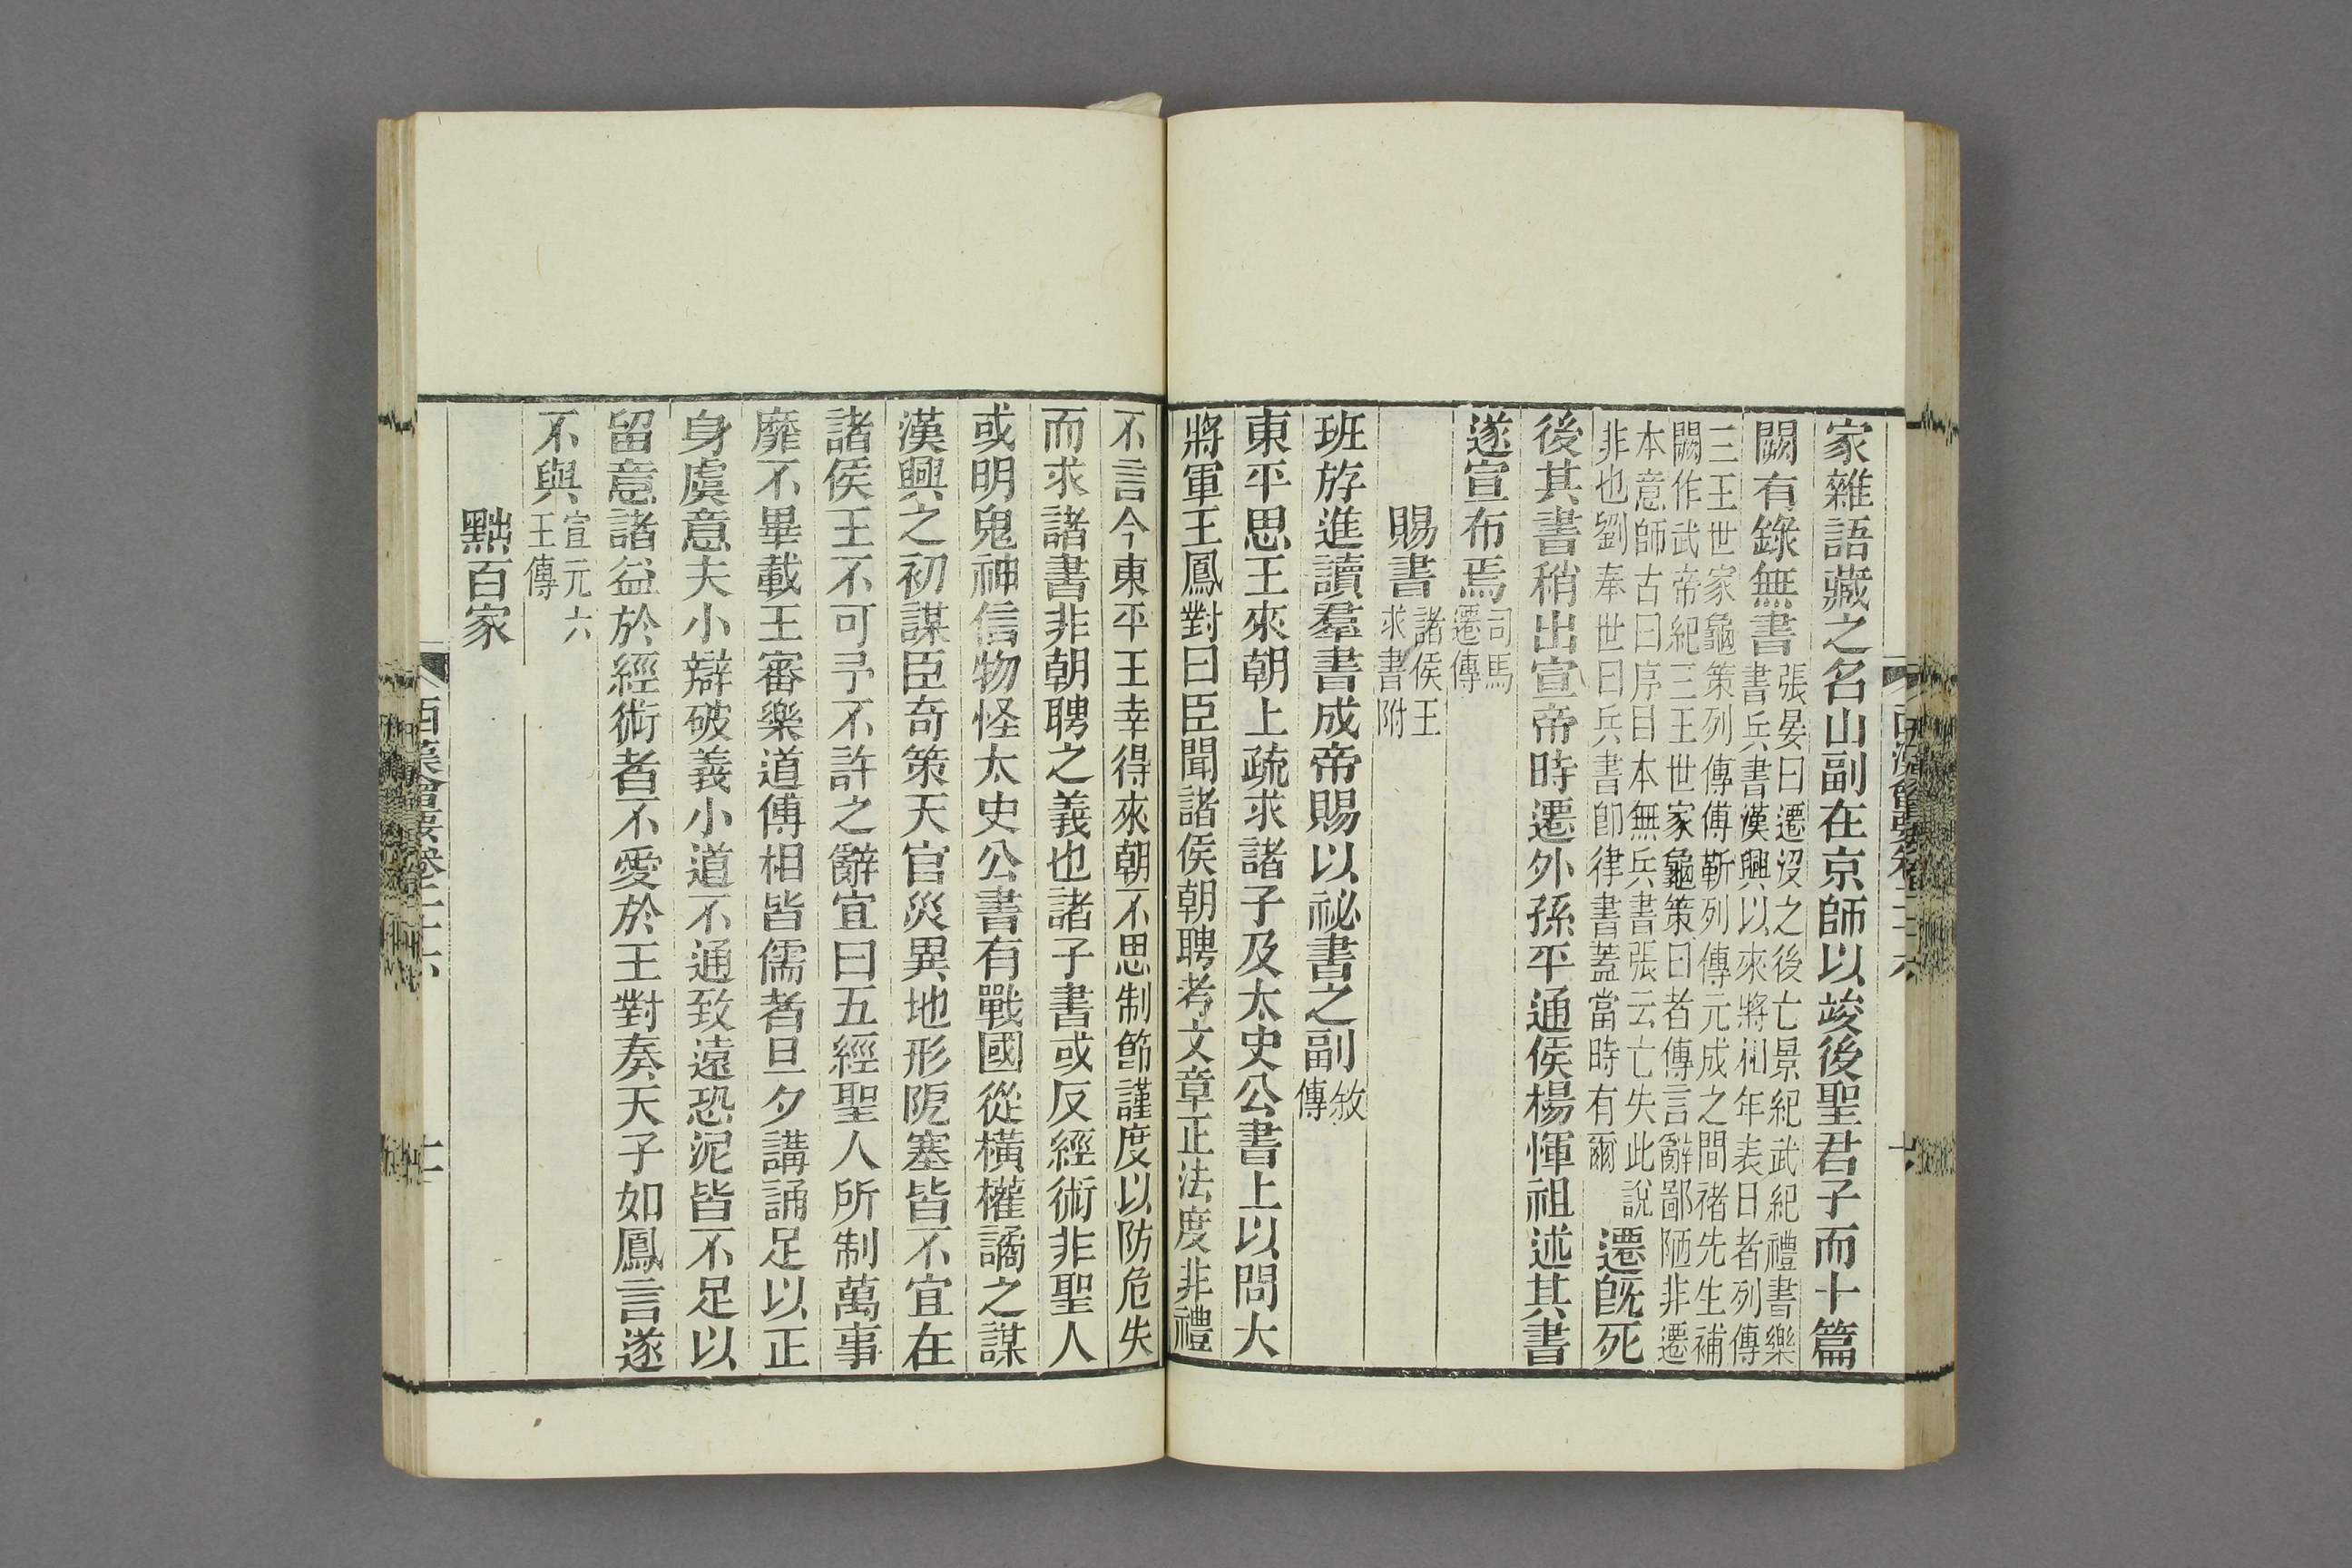 家雜語藏之名山副在京師以竢後聖君子而十篇
闕有錄無書張晏曰遷沒之後亡景紀武紀禮書樂
書兵書漢興以來將相年表日者列傳
三王世家龜策列傳傅靳列傳元成之間褚先生補
闕作武帝紀三王世家龜策日者傳言辭鄙陋非遷
本意師古曰序目本無兵書張云亡失此說
非也劉奉世曰兵書即律書蓋當時有爾遷旣死
後其書稍出宣帝時遷外孫平通侯楊惲祖述其書
遂宣布焉司馬
遷傳
賜書諸侯王
求書附
班斿進讀羣書成帝賜以祕書之副敘
傳
東平思王來朝上疏求諸子及太史公書上以問大
將軍王鳳對曰臣聞諸侯朝聘考文章正法度非禮
不言今東平王幸得來朝不思制節謹度以防危失
而求諸書非朝聘之義也諸子書或反經術非聖人
或明鬼神信物怪太史公書有戰國從橫權譎之謀
漢興之初謀臣奇策天官災異地形阸塞皆不宜在
諸侯王不可予不許之辭宜曰五經聖人所制萬事
靡不畢載王審樂道傅相皆儒者旦夕講誦足以正
身虞意夫小辯破義小道不通致遠恐泥皆不足以
留意諸益於經術者不愛於王對奏天子如鳳言遂
不與宣元六
王傳
黜百家
西漢會要卷二十六
十一